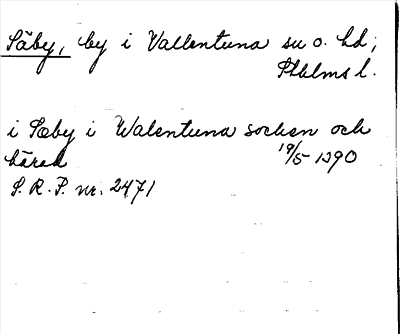 Säby, by i Vallentuna su o. hd;
Sthlms l.
i Sæby i Walentuna socken och
härad 19/5 1390
S.R.P. nr. 2471